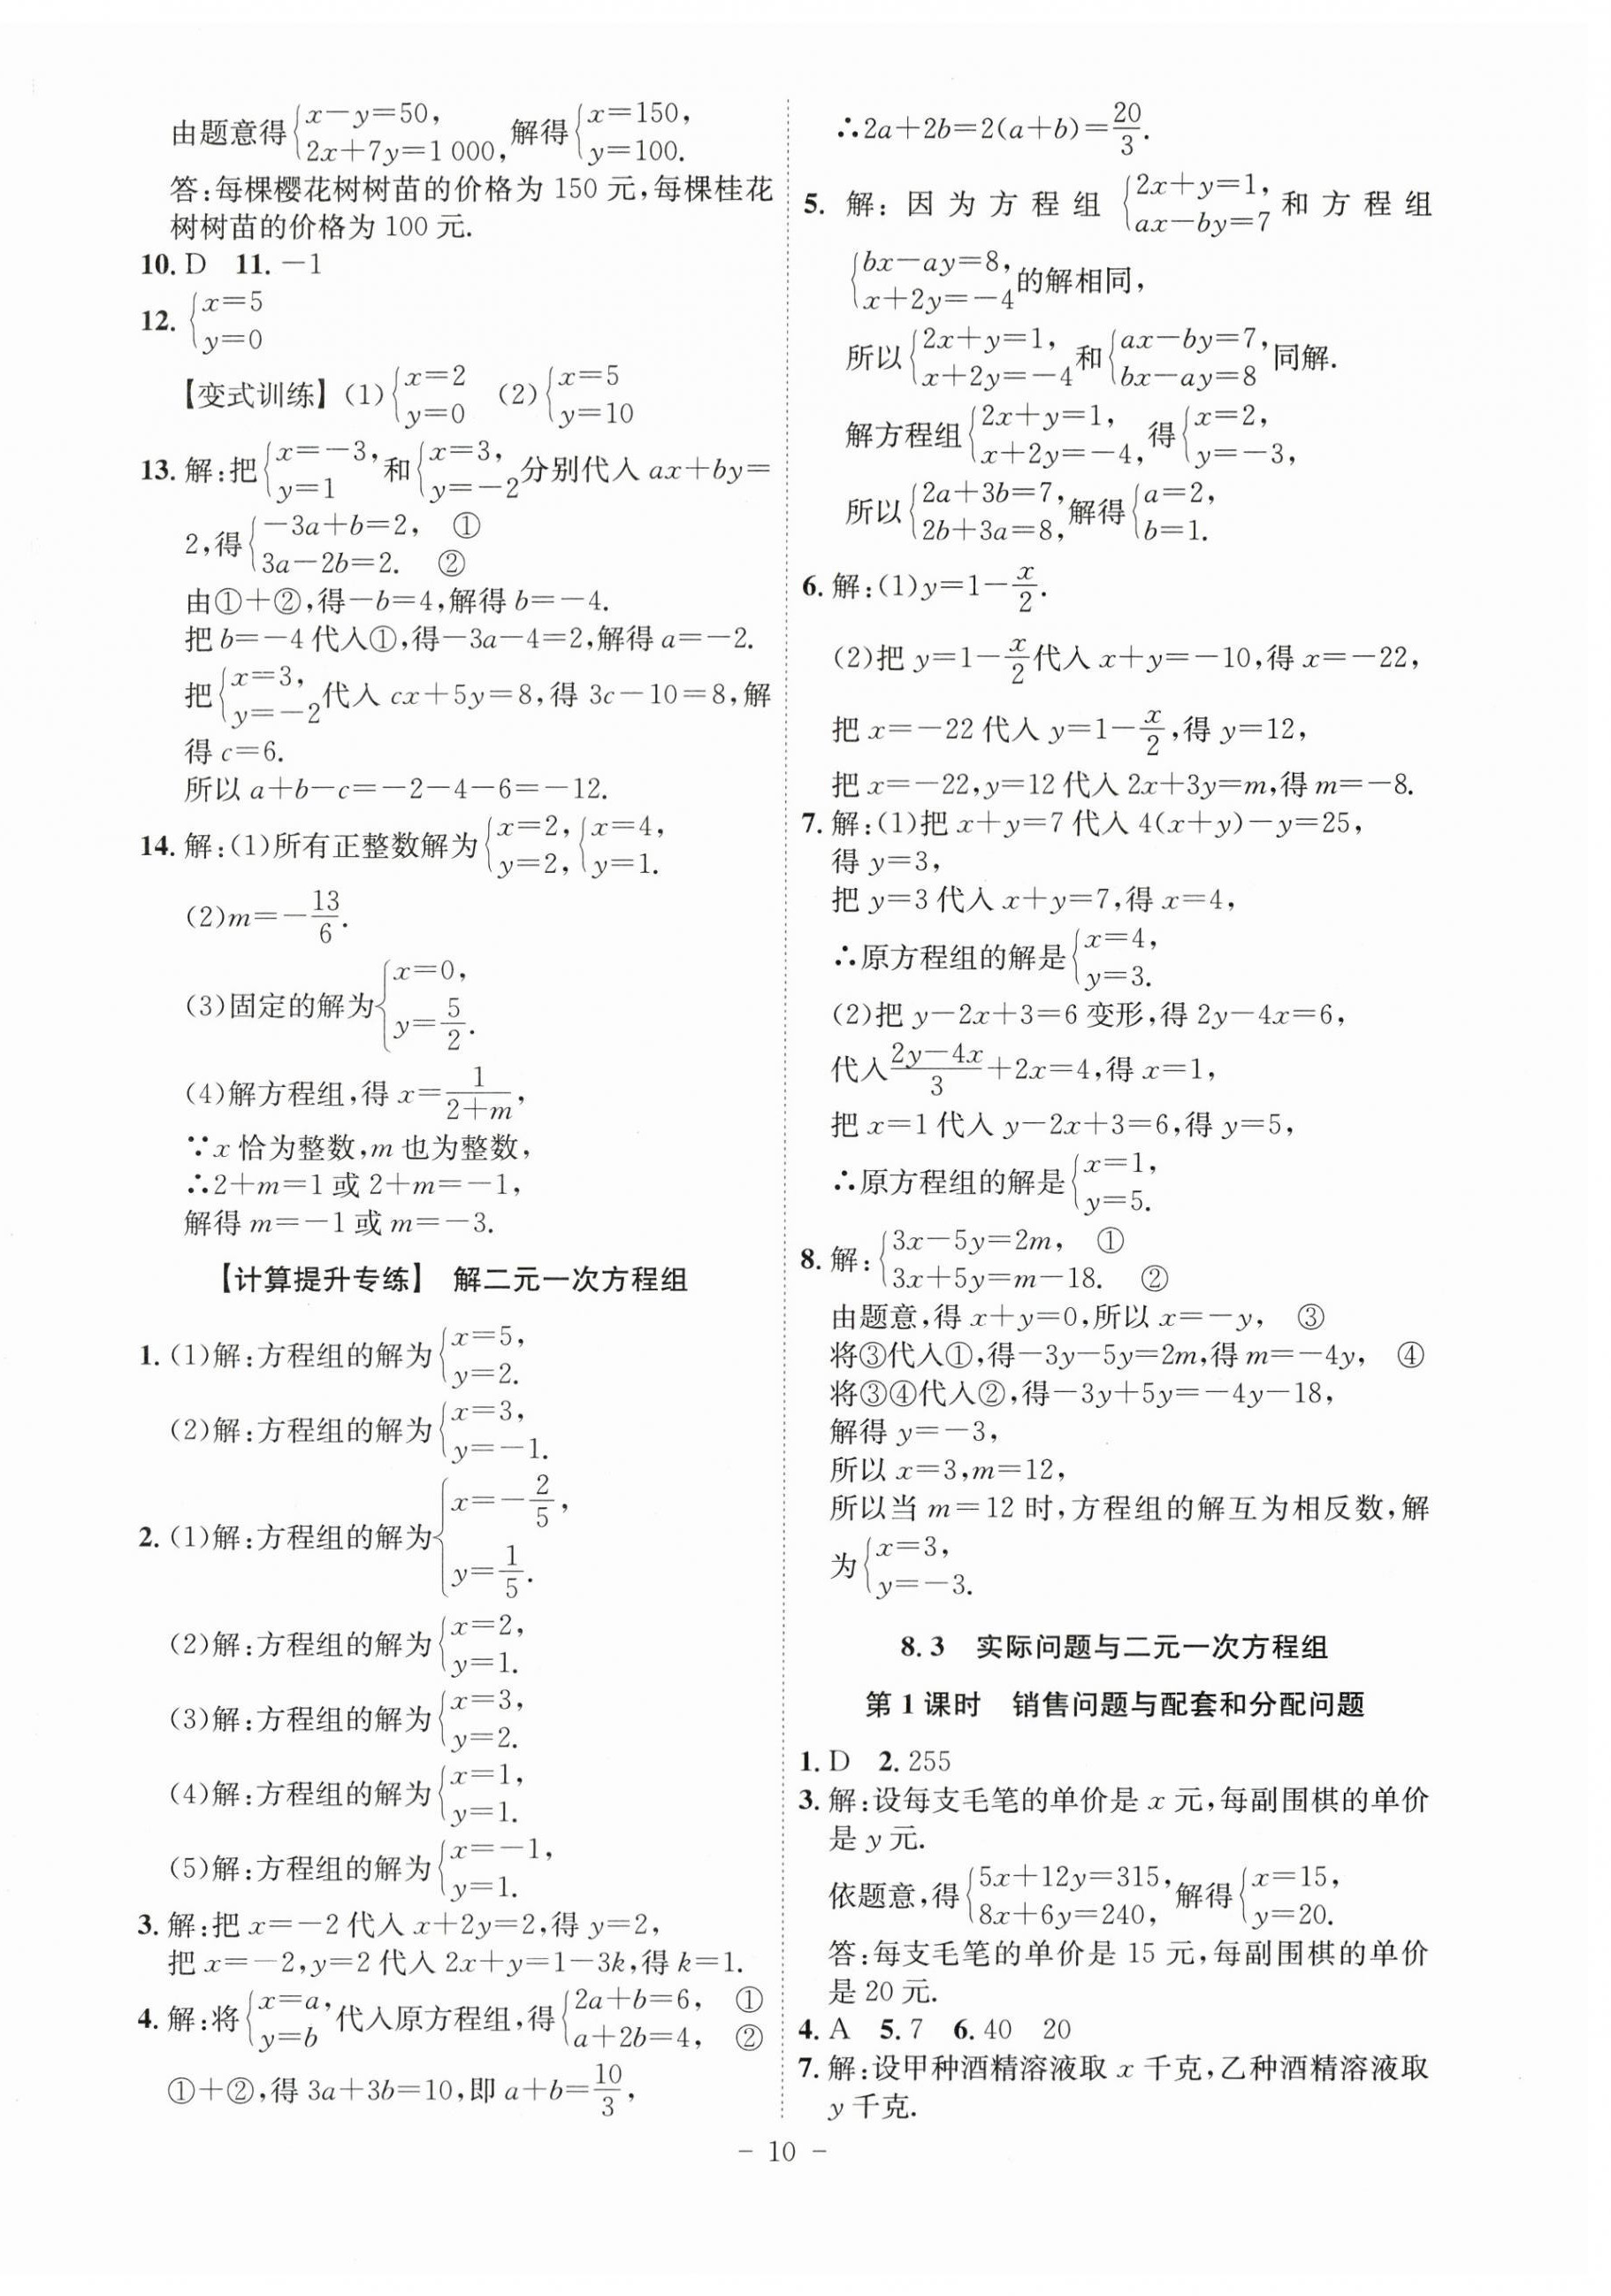 由题意得{x－y＝50, 2x＋7y＝1 000, 解得{x＝150, y＝100.
答:每棵樱花树树苗的价格为 150 元,每棵桂花
树树苗的价格为 100 元.
10. D 11. －1
12. {x＝5 y＝0
【变式训练】(1){x＝2 y＝0 (2){x＝5 y＝10
13. 解:把{x＝－3, y＝1 和{x＝3, y＝－2 分别代入 ax＋by＝
2,得{－3a＋b＝2, ① 3a－2b＝2. ②
由①＋②,得－b＝4,解得 b＝－4.
把 b＝－4 代入①,得－3a－4＝2,解得 a＝－2.
把{x＝3, y＝－2 代入 cx＋5y＝8,得 3c－10＝8,解
得 c＝6.
所以 a＋b－c＝－2－4－6＝－12.
14. 解:(1)所有正整数解为{x＝2, y＝2, {x＝4, y＝1.
(2)m＝－13/6.
(3)固定的解为{x＝0, y＝5/2.
(4)解方程组,得 x＝1/(2＋m),
∵x 恰为整数,m 也为整数,
∴2＋m＝1 或 2＋m＝－1,
解得 m＝－1 或 m＝－3.
【计算提升专练】 解二元一次方程组
1. (1)解:方程组的解为{x＝5, y＝2.
(2)解:方程组的解为{x＝3, y＝－1.
2. (1)解:方程组的解为{x＝－2/5, y＝1/5.
(2)解:方程组的解为{x＝2, y＝1.
(3)解:方程组的解为{x＝3, y＝2.
(4)解:方程组的解为{x＝1, y＝1.
(5)解:方程组的解为{x＝－1, y＝1.
3. 解:把 x＝－2 代入 x＋2y＝2,得 y＝2,
把 x＝－2,y＝2 代入 2x＋y＝1－3k,得 k＝1.
4. 解:将{x＝a, y＝b 代入原方程组,得{2a＋b＝6, ① a＋2b＝4, ②
①＋②,得 3a＋3b＝10,即 a＋b＝10/3,
∴2a＋2b＝2(a＋b)＝20/3.
5. 解: 因为方程组 {2x＋y＝1, ax－by＝7 和方程组
{bx－ay＝8, x＋2y＝－4 的解相同,
所以{2x＋y＝1, x＋2y＝－4 和{ax－by＝7, bx－ay＝8 同解.
解方程组{2x＋y＝1, x＋2y＝－4, 得{x＝2, y＝－3,
所以{2a＋3b＝7, 2b＋3a＝8, 解得{a＝2, b＝1.
6. 解:(1)y＝1－x/2.
(2)把 y＝1－x/2 代入 x＋y＝－10,得 x＝－22,
把 x＝－22 代入 y＝1－x/2,得 y＝12,
把 x＝－22,y＝12 代入 2x＋3y＝m,得 m＝－8.
7. 解:(1)把 x＋y＝7 代入 4(x＋y)－y＝25,
得 y＝3,
把 y＝3 代入 x＋y＝7,得 x＝4,
∴原方程组的解是{x＝4, y＝3.
(2)把 y－2x＋3＝6 变形,得 2y－4x＝6,
代入(2y－4x)/3＋2x＝4,得 x＝1,
把 x＝1 代入 y－2x＋3＝6,得 y＝5,
∴原方程组的解是{x＝1, y＝5.
8. 解:{3x－5y＝2m, ① 3x＋5y＝m－18. ②
由题意,得 x＋y＝0,所以 x＝－y, ③
将③代入①,得－3y－5y＝2m,得 m＝－4y, ④
将③④代入②,得－3y＋5y＝－4y－18,
解得 y＝－3,
所以 x＝3,m＝12,
所以当 m＝12 时,方程组的解互为相反数,解
为{x＝3, y＝－3.
8.3 实际问题与二元一次方程组
第 1 课时 销售问题与配套和分配问题
1. D 2. 255
3. 解:设每支毛笔的单价是 x 元,每副围棋的单价
是 y 元.
依题意,得{5x＋12y＝315, 8x＋6y＝240, 解得{x＝15, y＝20.
答:每支毛笔的单价是 15 元,每副围棋的单价
是 20 元.
4. A 5. 7 6. 40 20
7. 解:设甲种酒精溶液取 x 千克,乙种酒精溶液取
y 千克.
－ 10 －